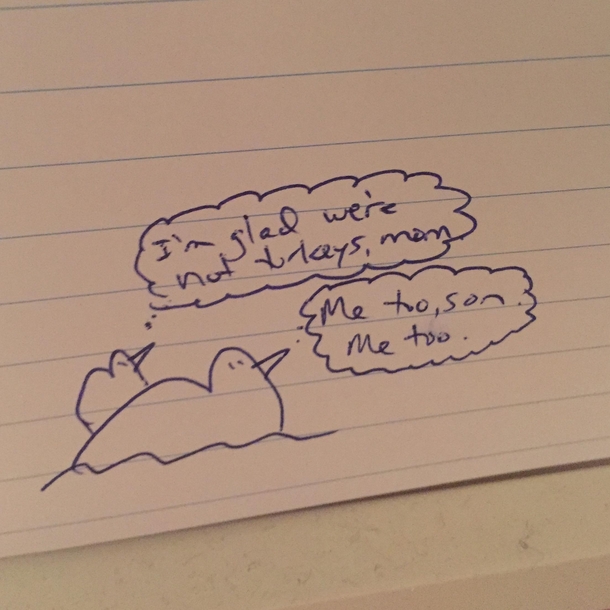 I'm glad we're
not turkeys, mom
Me too, son.
Me too.